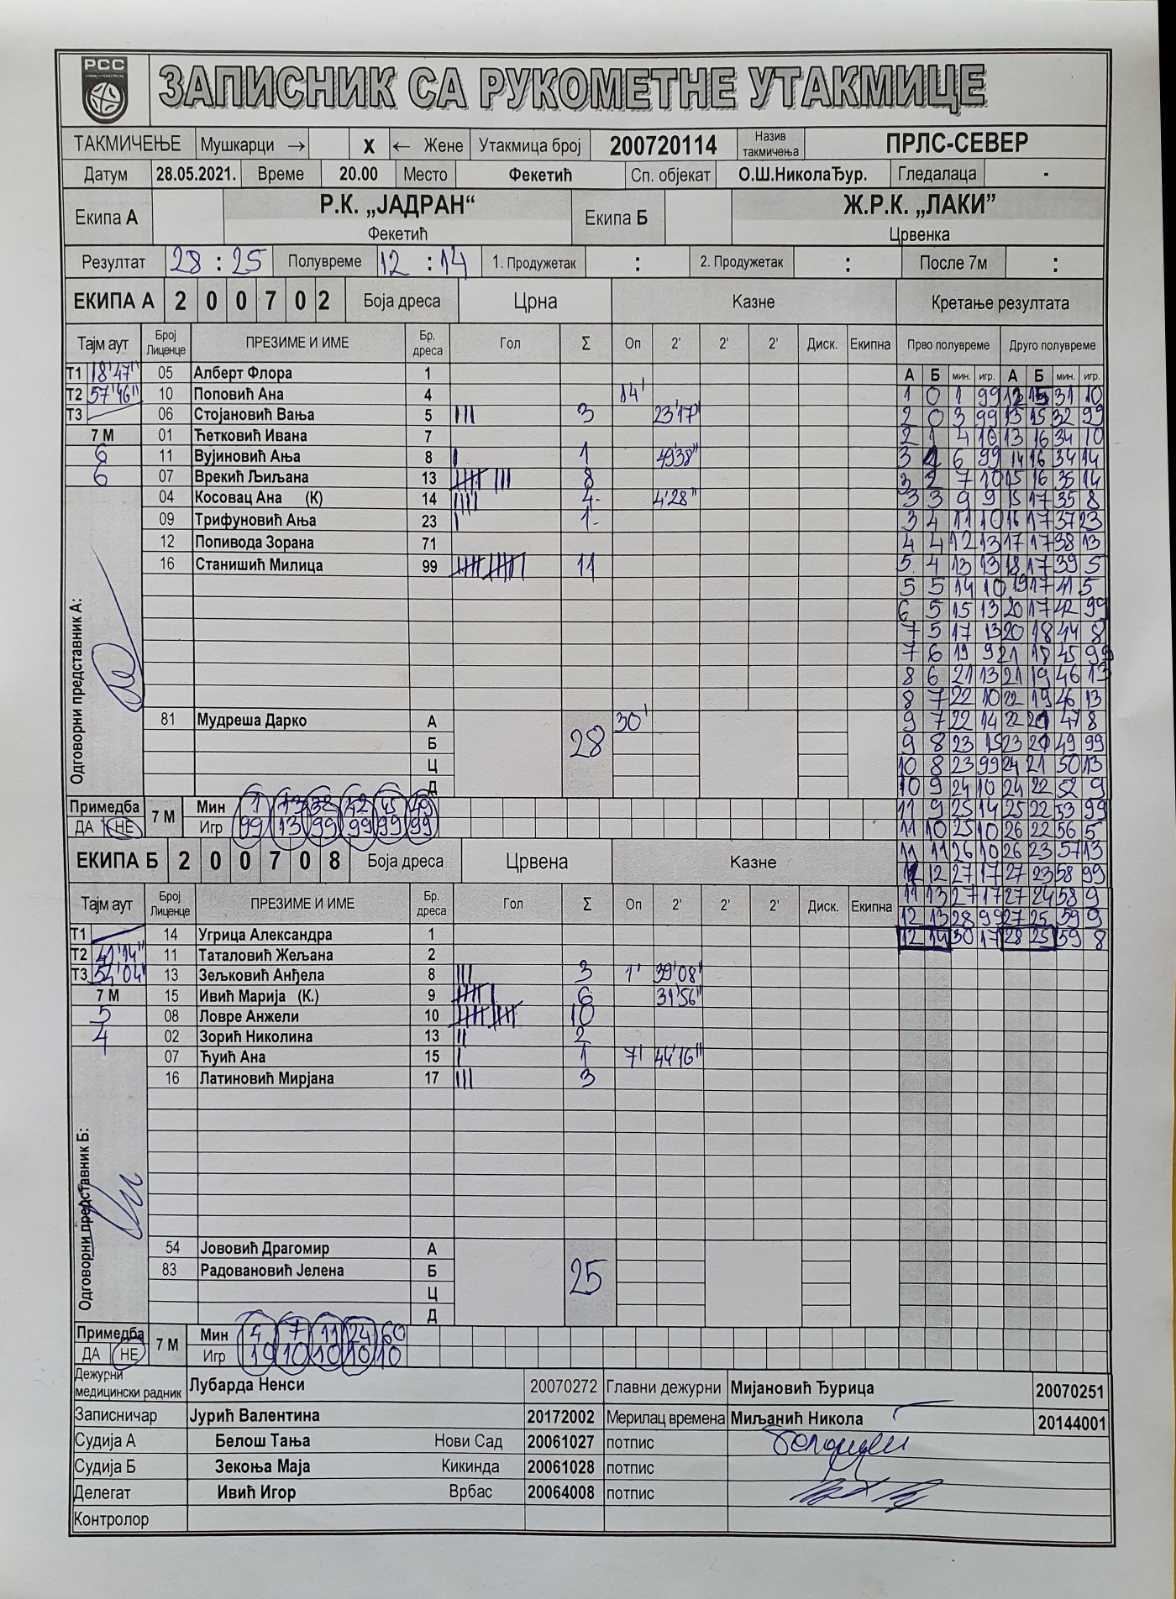 РСС
ЗАПИСНИК СА РУКОМЕТНЕ УТАКМИЦЕ
ТАКМИЧЕЊЕ Мушкарци → X ← Жене Утакмица број 200720114 Назив такмичења ПРЛС-СЕВЕР
Датум 28.05.2021. Време 20.00 Место Фекетић Сп. објекат О.Ш.НиколаЂур. Гледалаца -
Екипа А Р.К. „ЈАДРАН“ Фекетић Екипа Б Ж.Р.К. „ЛАКИ” Црвенка
Резултат 28 : 25 Полувреме 12 : 14 1. Продужетак : 2. Продужетак : После 7м :
ЕКИПА А 2 0 0 7 0 2 Боја дреса Црна Казне Кретање резултата
Тајм аут Број Лиценце ПРЕЗИМЕ И ИМЕ Бр. дреса Гол Σ Оп 2' 2' 2' Диск. Екипна Прво полувреме Друго полувреме
Т1 18'47" 05 Алберт Флора 1 А Б мин. игр. А Б мин. игр.
Т2 57'46" 10 Поповић Ана 4 14' 1 0 1 99 12 15 31 10
Т3 06 Стојановић Вања 5 III 3 23'17" 2 0 3 99 13 15 32 99
7 М 01 Ћетковић Ивана 7 2 1 4 10 13 16 34 10
6 11 Вујиновић Ања 8 I 1 49'38" 3 1 6 99 14 16 34 14
6 07 Врекић Љиљана 13 IIIII III 8 3 2 7 10 15 16 35 14
04 Косовац Ана (К) 14 IIII 4 4'28" 3 3 9 9 15 17 35 8
09 Трифуновић Ања 23 I 1 3 4 11 10 16 17 37 23
12 Попивода Зорана 71 4 4 12 13 17 17 38 13
16 Станишић Милица 99 IIIII IIIII I 11 5 4 13 13 18 17 39 5
5 5 14 10 19 17 41 5
6 5 15 13 20 17 42 99
7 5 17 13 20 18 44 8
7 6 19 9 21 18 45 99
Одговорни представник А:
8 6 21 13 21 19 46 13
8 7 22 10 22 19 46 13
81 Мудреша Дарко А 28 30' 9 7 22 14 22 20 47 8
Б 9 8 23 15 23 20 49 99
Ц 10 8 23 99 24 21 50 13
Д 10 9 24 10 24 22 52 9
Примедба 7 М Мин 1 13 38 42 45 49 11 9 25 14 25 22 53 99
ДА НЕ Игр 99 13 99 99 99 99 11 10 25 10 26 22 56 5
ЕКИПА Б 2 0 0 7 0 8 Боја дреса Црвена Казне 11 11 26 10 26 23 57 13
12 27 17 27 23 58 99
Тајм аут Број Лиценце ПРЕЗИМЕ И ИМЕ Бр. дреса Гол Σ Оп 2' 2' 2' Диск. Екипна 11 13 27 17 27 24 58 9
12 13 28 99 27 25 59 9
Т1 14 Угрица Александра 1 12 14 30 17 28 25 59 8
Т2 41'14" 11 Таталовић Жељана 2
Т3 54'04" 13 Зељковић Анђела 8 III 3 1' 39'08"
7 М 15 Ивић Марија (К.) 9 IIIII I 6 31'56"
5 08 Ловре Анжели 10 IIIII IIIII 10
4 02 Зорић Николина 13 II 2
07 Ћуић Ана 15 I 1 7' 44'16"
16 Латиновић Мирјана 17 III 3
Одговорни представник Б:
54 Јововић Драгомир А 25
83 Радовановић Јелена Б
Ц
Д
Примедба 7 М Мин 4 7 11 24 60
ДА НЕ Игр 10 10 10 10 10
Дежурни медицински радник Лубарда Ненси 20070272 Главни дежурни Мијановић Ђурица 20070251
Записничар Јурић Валентина 20172002 Мерилац времена Миљанић Никола 20144001
Судија А Белош Тања Нови Сад 20061027 потпис
Судија Б Зекоња Маја Кикинда 20061028 потпис
Делегат Ивић Игор Врбас 20064008 потпис
Контролор